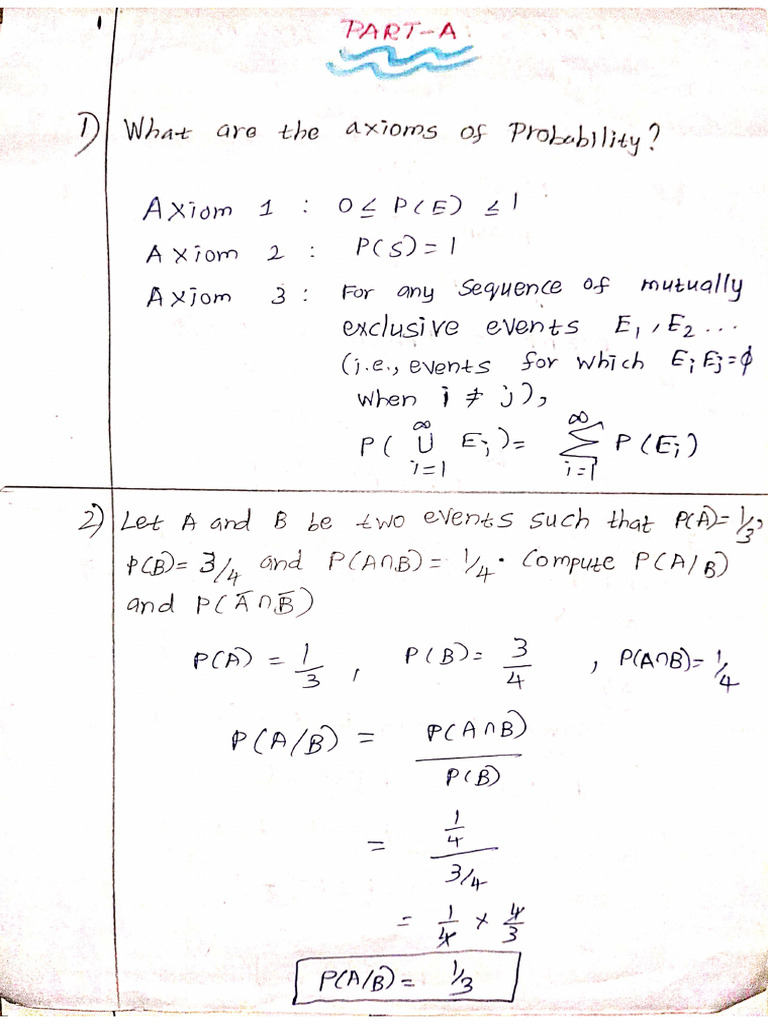 PART-A
1) What are the axioms of Probability?
Axiom 1 : 0 ≤ P(E) ≤ 1
Axiom 2 : P(S) = 1
Axiom 3 : For any sequence of mutually
exclusive events E₁, E₂ ...
(i.e., events for which EᵢEⱼ=ϕ
when i ≠ j),
P( ∞∪i=1 Eᵢ) = ∞∑i=1 P(Eᵢ)
2) Let A and B be two events such that P(A)= 1/3,
P(B)= 3/4 and P(A∩B) = 1/4. Compute P(A/B)
and P(A̅∩B̅)
P(A) = 1/3 , P(B) = 3/4 , P(A∩B)= 1/4
P(A/B) = P(A∩B)/P(B)
= 1/4 / 3/4
= 1/4 × 4/3
P(A/B) = 1/3